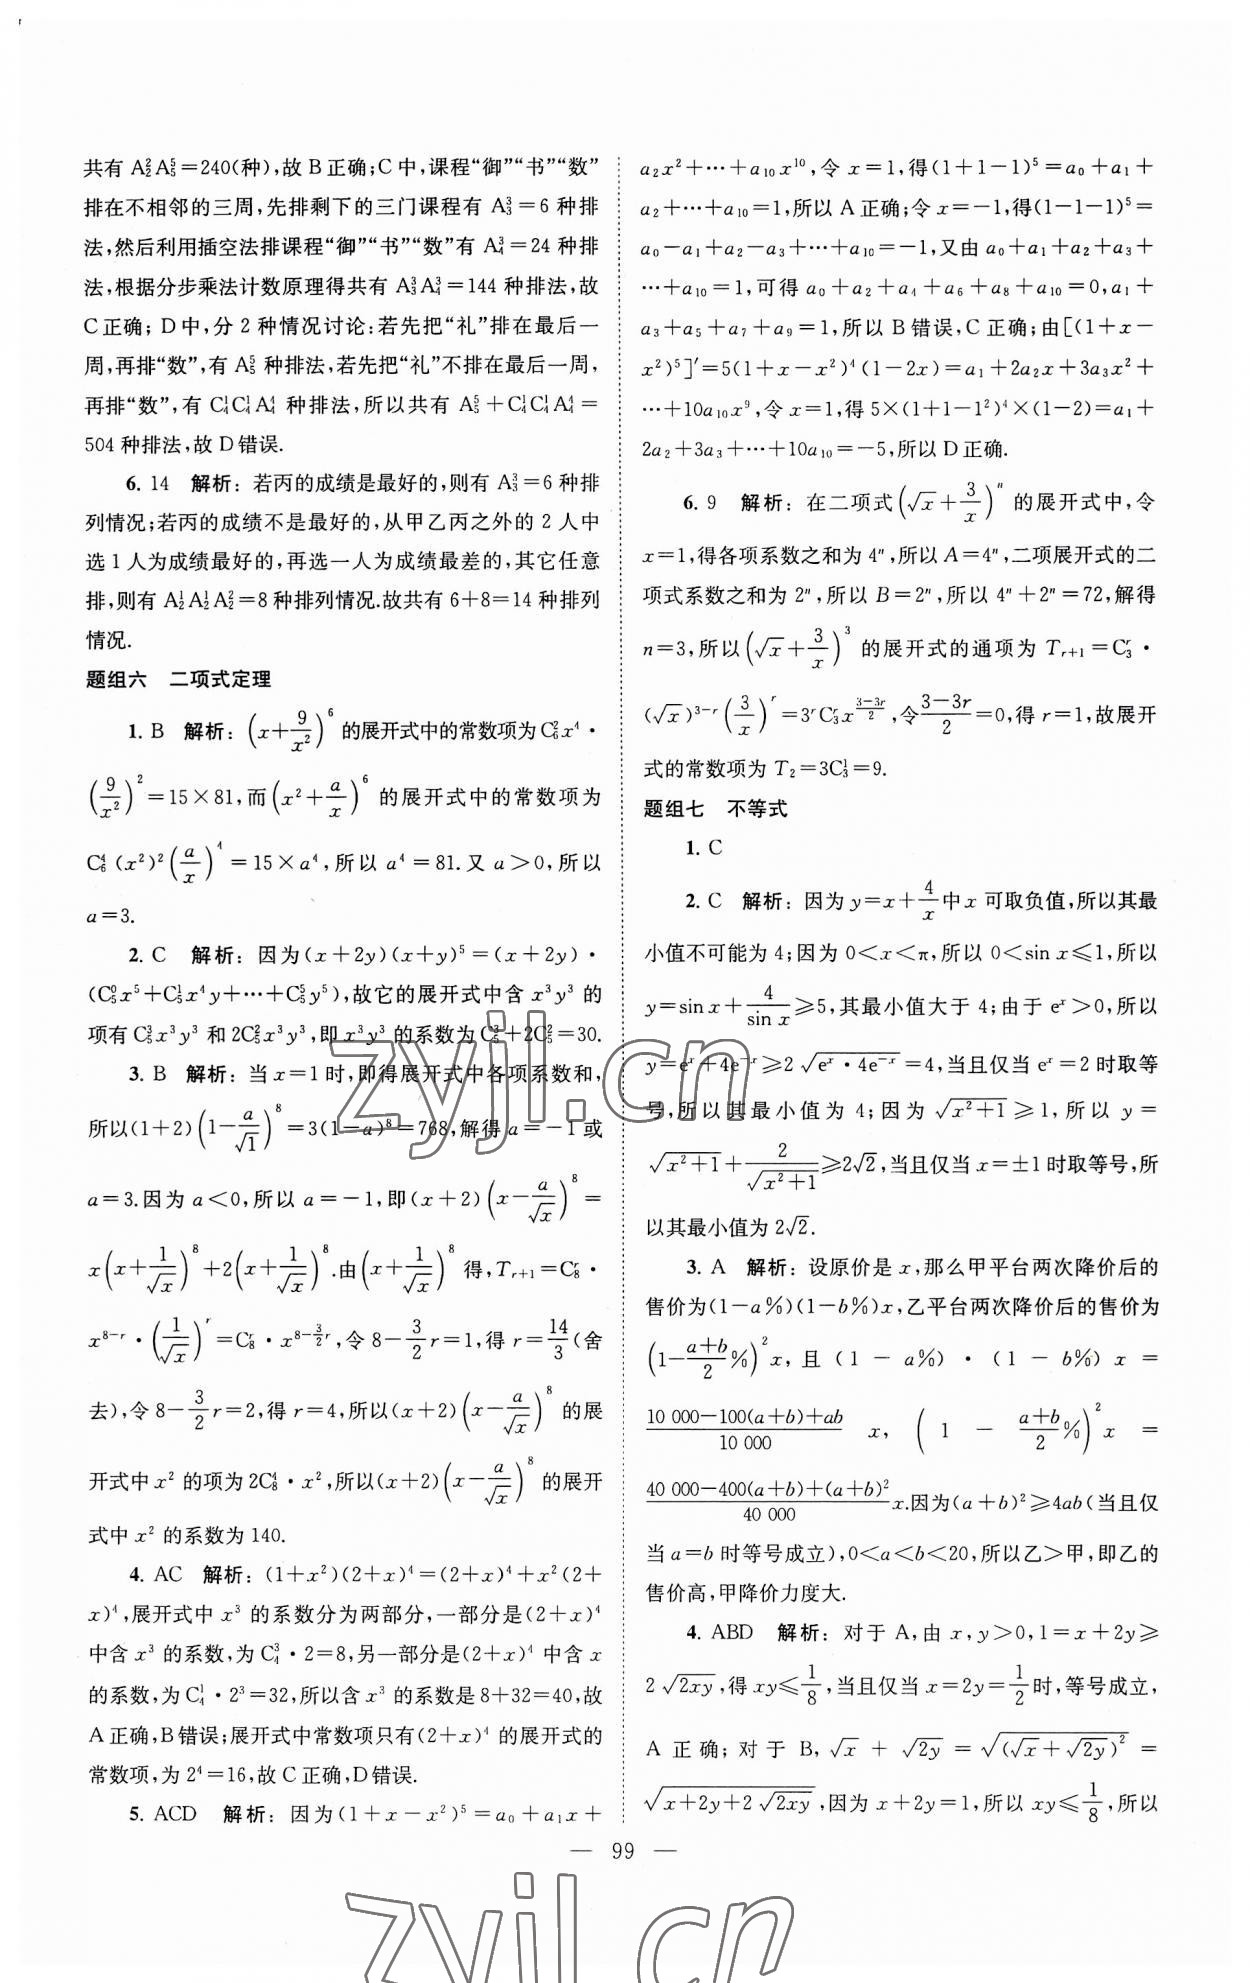 共有 A₂²A₅⁵=240(种),故 B 正确;C 中,课程“御”“书”“数”
排在不相邻的三周,先排剩下的三门课程有 A₃³=6 种排
法,然后利用插空法排课程“御”“书”“数”有 A₄³=24 种排
法,根据分步乘法计数原理得共有 A₃³A₄³=144 种排法,故
C 正确; D 中,分 2 种情况讨论:若先把“礼”排在最后一
周,再排“数”,有 A₅⁵ 种排法,若先把“礼”不排在最后一周,
再排“数”,有 C₄¹C₄¹A₄⁴ 种排法,所以共有 A₅⁵+C₄¹C₄¹A₄⁴=
504 种排法,故 D 错误.
6. 14 解析: 若丙的成绩是最好的,则有 A₃³=6 种排
列情况;若丙的成绩不是最好的,从甲乙丙之外的 2 人中
选 1 人为成绩最好的,再选一人为成绩最差的,其它任意
排,则有 A₂¹A₂¹A₂²=8 种排列情况.故共有 6+8=14 种排列
情况.
题组六 二项式定理
1. B 解析: (x+9/x²)⁶ 的展开式中的常数项为 C₆²x⁴·
(9/x²)²=15×81,而(x²+a/x)⁶ 的展开式中的常数项为
C₆⁴(x²)²(a/x)⁴=15×a⁴,所以 a⁴=81.又 a>0,所以
a=3.
2. C 解析: 因为(x+2y)(x+y)⁵=(x+2y)·
(C₅⁰x⁵+C₅¹x⁴y+···+C₅⁵y⁵),故它的展开式中含 x³y³ 的
项有 C₅³x³y³ 和 2C₅²x³y³,即 x³y³ 的系数为 C₅³+2C₅²=30.
3. B 解析: 当 x=1 时,即得展开式中各项系数和,
所以(1+2)(1−a/√1)⁸=3(1−a)⁸=768,解得 a=−1 或
a=3.因为 a<0,所以 a=−1,即(x+2)(x−a/√x)⁸=
x(x+1/√x)⁸+2(x+1/√x)⁸.由(x+1/√x)⁸得,Tᵣ₊₁=C₈ʳ·
x⁸⁻ʳ·(1/√x)ʳ=C₈ʳ·x^(8−(3/2)r),令 8−(3/2)r=1,得 r=14/3(舍
去),令 8−(3/2)r=2,得 r=4,所以(x+2)(x−a/√x)⁸ 的展
开式中 x² 的项为 2C₈⁴·x²,所以(x+2)(x−a/√x)⁸ 的展开
式中 x² 的系数为 140.
4. AC 解析: (1+x²)(2+x)⁴=(2+x)⁴+x²(2+
x)⁴,展开式中 x³ 的系数分为两部分,一部分是(2+x)⁴
中含 x³ 的系数,为 C₄³·2=8,另一部分是(2+x)⁴ 中含 x
的系数,为 C₄¹·2³=32,所以含 x³ 的系数是 8+32=40,故
A 正确,B 错误;展开式中常数项只有(2+x)⁴ 的展开式的
常数项,为 2⁴=16,故 C 正确,D 错误.
5. ACD 解析: 因为(1+x−x²)⁵=a₀+a₁x+
a₂x²+···+a₁₀x¹⁰,令 x=1,得(1+1−1)⁵=a₀+a₁+
a₂+···+a₁₀=1,所以 A 正确;令 x=−1,得(1−1−1)⁵=
a₀−a₁+a₂−a₃+···+a₁₀=−1,又由 a₀+a₁+a₂+a₃+
···+a₁₀=1,可得 a₀+a₂+a₄+a₆+a₈+a₁₀=0,a₁+
a₃+a₅+a₇+a₉=1,所以 B 错误,C 正确;由[(1+x−
x²)⁵]′=5(1+x−x²)⁴(1−2x)=a₁+2a₂x+3a₃x²+
···+10a₁₀x⁹,令 x=1,得 5×(1+1−1²)⁴×(1−2)=a₁+
2a₂+3a₃+···+10a₁₀=−5,所以 D 正确.
6. 9 解析: 在二项式(√x+3/x)ⁿ 的展开式中,令
x=1,得各项系数之和为 4ⁿ,所以 A=4ⁿ,二项展开式的二
项式系数之和为 2ⁿ,所以 B=2ⁿ,所以 4ⁿ+2ⁿ=72,解得
n=3,所以(√x+3/x)³ 的展开式的通项为 Tᵣ₊₁=C₃ʳ·
(√x)³⁻ʳ(3/x)ʳ=3ʳC₃ʳx^((3−3r)/2),令(3−3r)/2=0,得 r=1,故展开
式的常数项为 T₂=3C₃¹=9.
题组七 不等式
1. C
2. C 解析: 因为 y=x+4/x 中 x 可取负值,所以其最
小值不可能为 4;因为 0<x<π,所以 0<sin x⩽1,所以
y=sin x+4/sin x⩾5,其最小值大于 4;由于 eˣ>0,所以
y=eˣ+4e⁻ˣ⩾2√(eˣ·4e⁻ˣ)=4,当且仅当 eˣ=2 时取等
号,所以其最小值为 4;因为√(x²+1)⩾1,所以 y=
√(x²+1)+2/√(x²+1)⩾2√2,当且仅当 x=±1 时取等号,所
以其最小值为 2√2.
3. A 解析: 设原价是 x,那么甲平台两次降价后的
售价为(1−a%)(1−b%)x,乙平台两次降价后的售价为
(1−(a+b)/2 %)²x,且 (1−a%)·(1−b%)x=
(10 000−100(a+b)+ab)/10 000 x,(1−(a+b)/2 %)²x=
(40 000−400(a+b)+(a+b)²)/40 000 x.因为(a+b)²⩾4ab(当且仅
当 a=b 时等号成立),0<a<b<20,所以乙>甲,即乙的
售价高,甲降价力度大.
4. ABD 解析: 对于 A,由 x,y>0,1=x+2y⩾
2√(2xy),得 xy⩽1/8,当且仅当 x=2y=1/2时,等号成立,
A 正确; 对于 B,√x+√(2y)=√((√x+√(2y))²)=
√(x+2y+2√(2xy)),因为 x+2y=1,所以 xy⩽1/8,所以
— 99 —
zyjl.cn
zyjl.cn